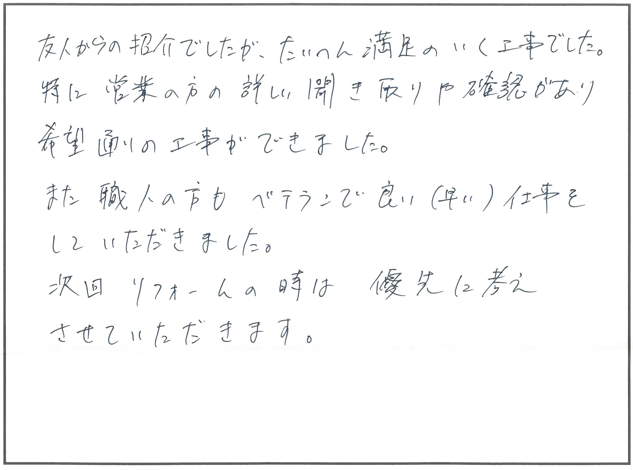 友人からの紹介でしたが、たいへん満足のいく工事でした。
特に営業の方の詳しい聞き取りや確認があり
希望通りの工事ができました。
また職人の方もベテランで良い(早い)仕事を
していただきました。
次回リフォームの時は優先に考え
させていただきます。